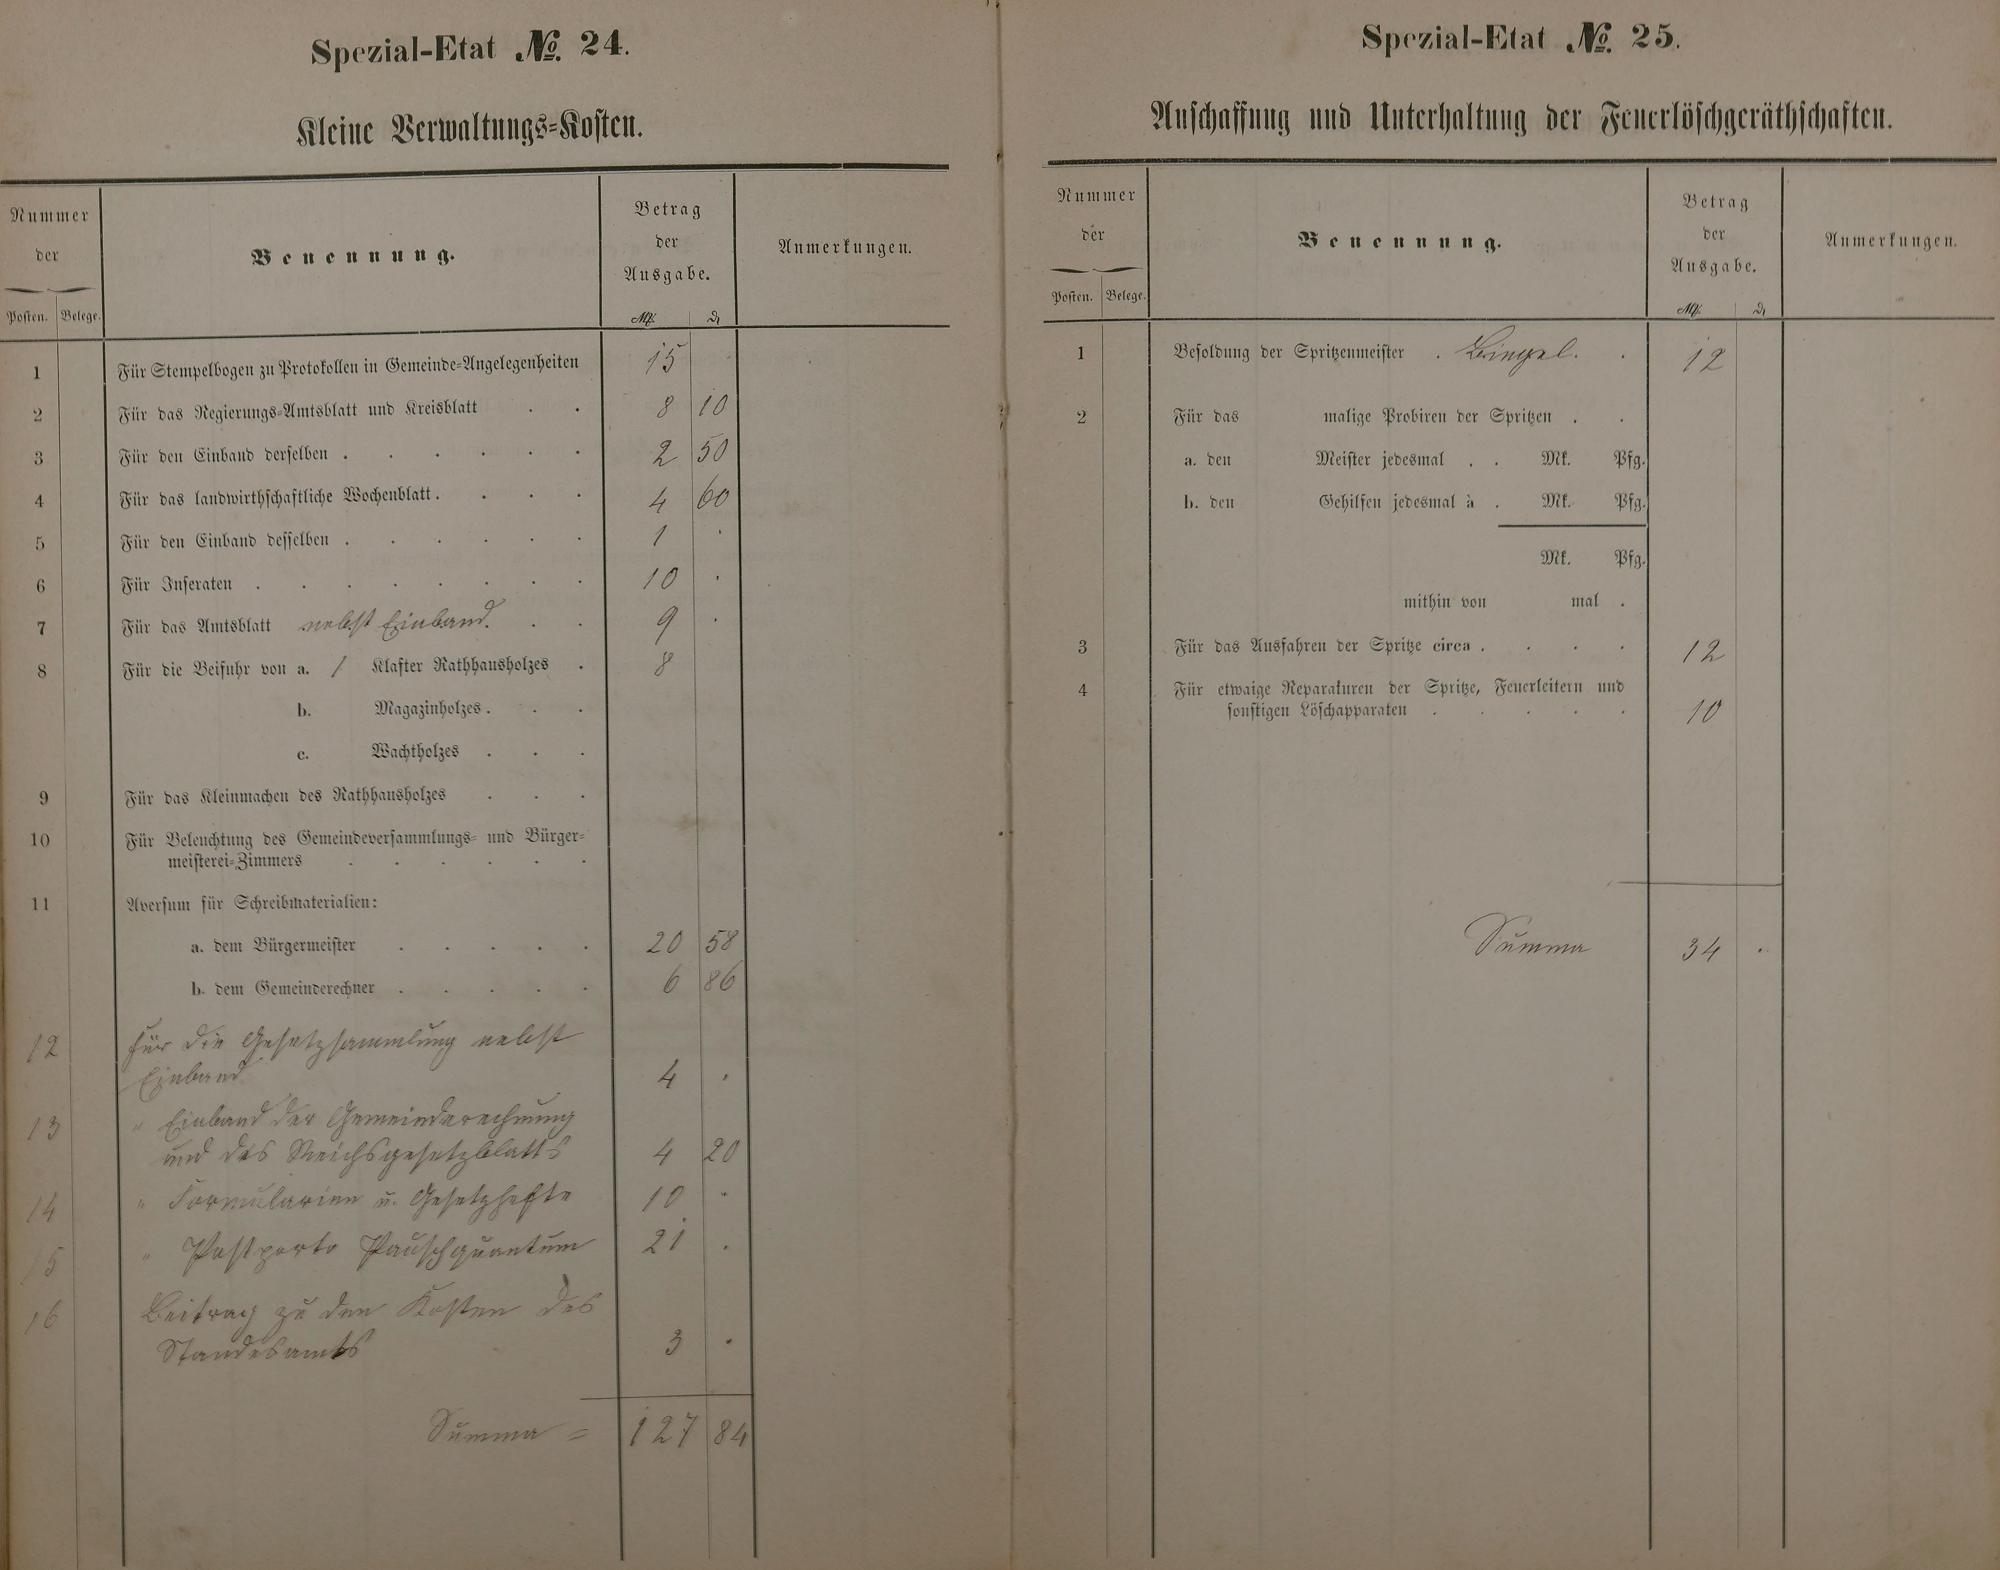 Spezial-Etat No. 24.
Kleine Verwaltungs-Kosten.
Nummer der
Posten. Belege.
Benennung.
Betrag der Ausgabe.
Mk. ₰
Anmerkungen.
1 Für Stempelbogen zu Protokollen in Gemeinde-Angelegenheiten 15
2 Für das Regierungs-Amtsblatt und Kreisblatt . . 8 10
3 Für den Einband derselben . . . . . . 2 50
4 Für das landwirthschaftliche Wochenblatt . . . . 4 60
5 Für den Einband desselben . . . . . . 1 .
6 Für Inseraten . . . . . . . . 10 .
7 Für das Amtsblatt nebst Einband. . . 9 .
8 Für die Beifuhr von a. 1 Klafter Rathhausholzes . 8
b. Magazinholzes . . .
c. Wachtholzes . . .
9 Für das Kleinmachen des Rathhausholzes . . .
10 Für Beleuchtung des Gemeindeversammlungs- und Bürger-
meisterei-Zimmers . . . . . .
11 Aversum für Schreibmaterialien:
a. dem Bürgermeister . . . . . 20 58
b. dem Gemeinderechner . . . . . 6 86
12 Für die Gesetzsammlung nebst
Einband 4 .
13 " Einband der Gemeinderechnung
und des Reichsgesetzblatts 4 20
14 " Formularien u. Gesetzhefte 10 .
15 " Postporto Pauschquantum 21 .
16 Beitrag zu den Kosten des
Standesamts 3 .
Summa = 127 84
Spezial-Etat No. 25.
Anschaffung und Unterhaltung der Feuerlöschgeräthschaften.
Nummer der
Posten. Belege.
Benennung.
Betrag der Ausgabe.
Mk. ₰
Anmerkungen.
1 Besoldung der Spritzenmeister . Bingel. . 12
2 Für das malige Probiren der Spritzen . .
a. den Meister jedesmal . . Mk. Pfg.
b. den Gehilfen jedesmal à . Mk. Pfg.
Mk. Pfg.
mithin von mal .
3 Für das Ausfahren der Spritze circa . . . . 12
4 Für etwaige Reparaturen der Spritze, Feuerleitern und
sonstigen Löschapparaten . . . . . 10
Summa 34 .